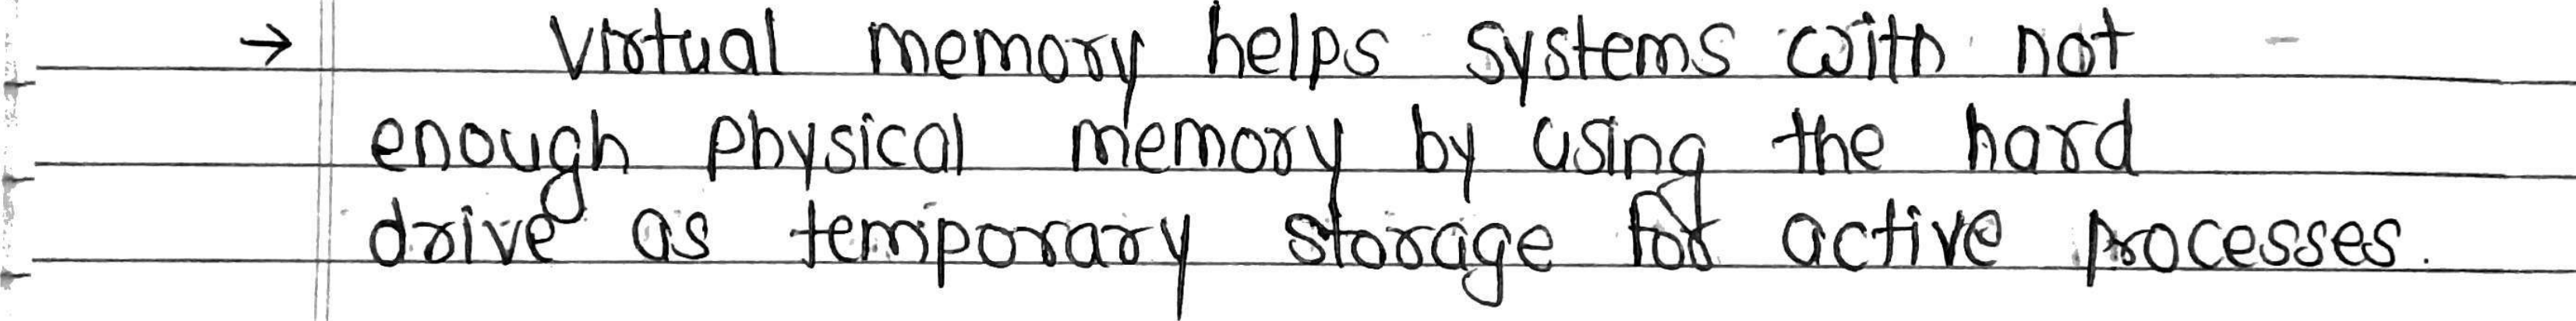 → Virtual memory helps systems with not
enough physical memory by using the hard
drive as temporary storage for active processes.